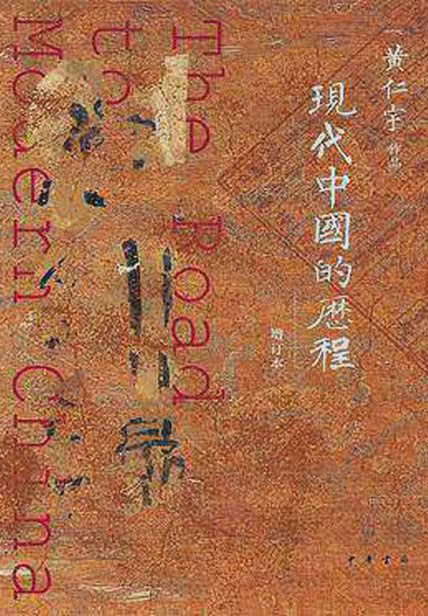 黄仁宇 作品
現代中國的歷程
增订本
The Road
to
Modern China
中华书局